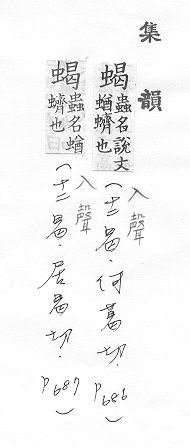 集韻
蝎 蟲名說文蝤蠐也
入聲
(十二曷·何葛切. P686)
蝎 蟲名蝤蠐也
入聲
(十二曷·居曷切. P687)